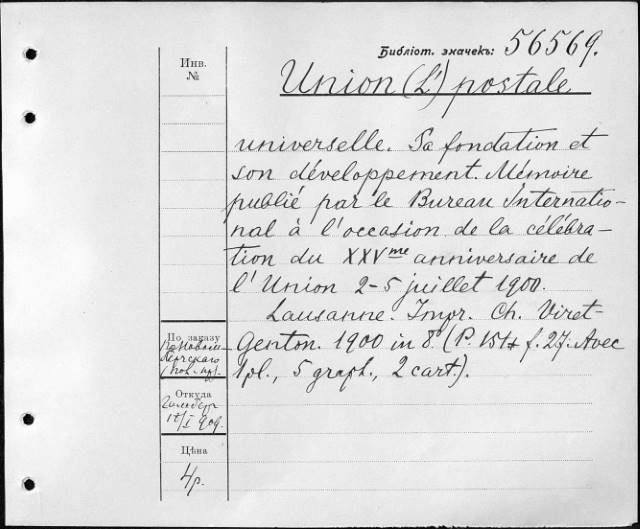 Библіот. значекъ: 56569.
Инв.
№
Union (L') postale
universelle. Sa fondation et
son développement. Mémoire
publié par le Bureau Internatio-
nal à l'occasion de la célébra-
tion du XXVme anniversaire de
l'Union 2-5 juillet 1900.
Lausanne. Impr. Ch. Viret-
Genton. 1900 in 8° (P. 151+ f. 27. Avec
1 pl., 5 graph., 2 cart.).
По заказу
Откуда
909.
Цѣна
4 р.